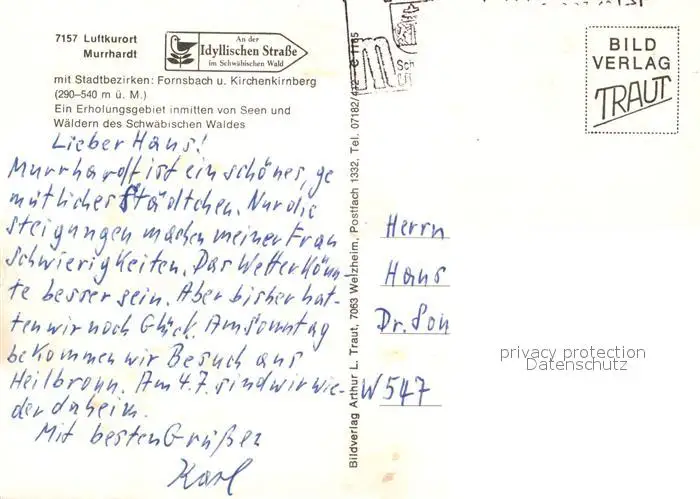 7157 Luftkurort
Murrhardt
An der
Idyllischen Straße
im Schwäbischen Wald
mit Stadtbezirken: Fornsbach u. Kirchenkirnberg
(290–540 m ü. M.)
Ein Erholungsgebiet inmitten von Seen und
Wäldern des Schwäbischen Waldes
Lieber Hans!
Murrhardt ist ein schönes, ge
mütliches Städtchen. Nur die
steigungen machen meiner Frau
schwierigkeiten. Das Wetter könn-
te besser sein. Aber bisher hat-
ten wir noch Glück. Am Sonntag
bekommen wir Besuch aus
Heilbronn. Am 4.7. sind wir wie-
der daheim.
Mit besten Grüßen
Karl
Bildverlag Arthur L. Traut, 7063 Welzheim, Postfach 1332, Tel. 07182/
BILD
VERLAG
TRAUT
Herrn
Hans
Dr. Son
W 547
privacy protection
Datenschutz